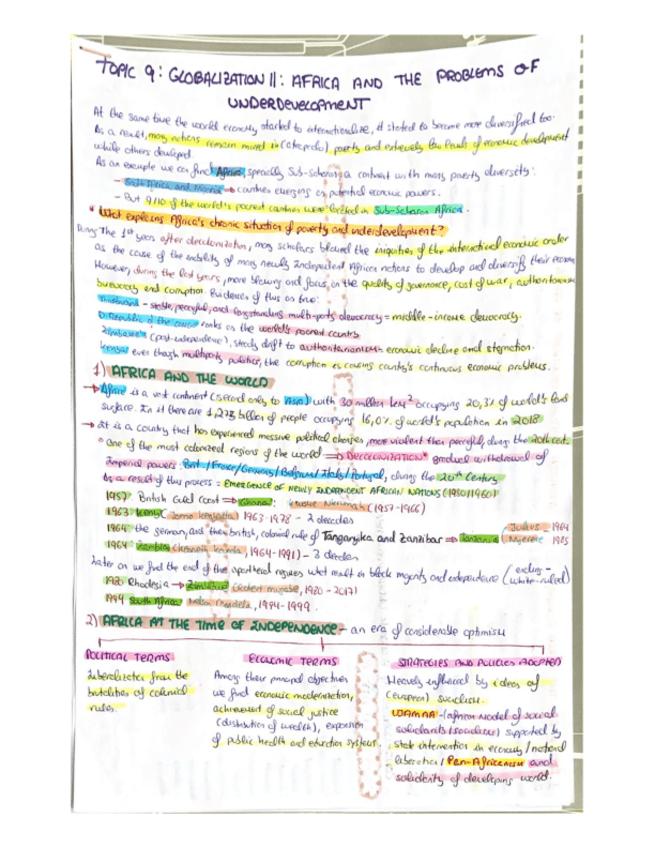 TOPIC 9: GLOBALIZATION II: AFRICA AND THE PROBLEMS OF
UNDERDEVELOPMENT
At the same time the world economy started to internationalize, it started to become more diversified too.
As a result, many nations remain mired in poverty and extremely low levels of economic development
while others developed.
As an example we can find Africa, specially Sub-Saharan a continent with most poverty diversity:
- South Africa and → countries emerging as potential economic powers.
- But 9/10 of the world's poorest countries were located in Sub-Saharan Africa.
* What explains Africa's chronic situation of poverty and underdevelopment?
During the 1st years after decolonization, many scholars blamed the iniquities of the international economic order
as the cause of the inability of many newly independent African nations to develop and diversify their
However, during the last years, more blaming and focus on the quality of governance, cost of war, authoritarianism
bureaucracy and corruption. Evidences of this are true:
- stable, peaceful, and longstanding multi-party democracy = middle-income democracy.
D. Republic of the Congo ranks as the world's poorest country
Zimbabwe's (post-independence), steady drift to authoritarianism = economic decline and stagnation.
Kenya even though multiparty politics, the corruption is causing country's continuous economic problems.
1) AFRICA AND THE WORLD
→ Africa is a vast continent (second only to Asia) with 30 million km² occupying 20,3% of world's land
surface. In it there are billion of people occupying 16,0% of world's population in 2018
→ It is a country that has experienced massive political changes, more violent than peaceful, during the 20th cent.
* One of the most colonized regions of the world ⇒ DECOLONIZATION* gradual withdrawal of
Imperial powers: Brit./France/Germany/Belgium/Italy/Portugal, during the 20th Century
As a result of this process = EMERGENCE OF NEWLY INDEPENDENT AFRICAN NATIONS (1950/1960)
1957 British Gold Coast ⇒ Ghana: Nkrumah (1957-1966)
1963 Kenya (Jomo Kenyatta) 1963-1978 - 2 decades
1964 the german, and then british, colonial rule of Tanganyika and Zanzibar ⇒ Tanzania (Julius Nyerere 1964 1985
1964 Zambia (Kenneth Kaunda, 1964-1991) - 3 decades
Later on we find the end of the apartheid regimes what result in black majority and independence (ending white-ruled)
1980 Rhodesia → Zimbabwe (Robert Mugabe, 1980-2017)
1994 South Africa Nelson Mandela, 1994-1999.
2) AFRICA AT THE TIME OF INDEPENDENCE - an era of considerable optimism
POLITICAL TERMS
Liberalization from the
brutalities of colonial
rules.
ECONOMIC TERMS
Among their principal objectives
we find economic modernization,
achievement of social justice
(distribution of wealth), expansion
of public health and education systems.
STRATEGIES AND POLICIES ADOPTED
Heavily influenced by ideas of
(European) socialism.
UJAMAA - (african model of social
solidarity/socialism) supported by
state intervention in economy / national
liberation / Pan-Africanism and
solidarity of developing world.